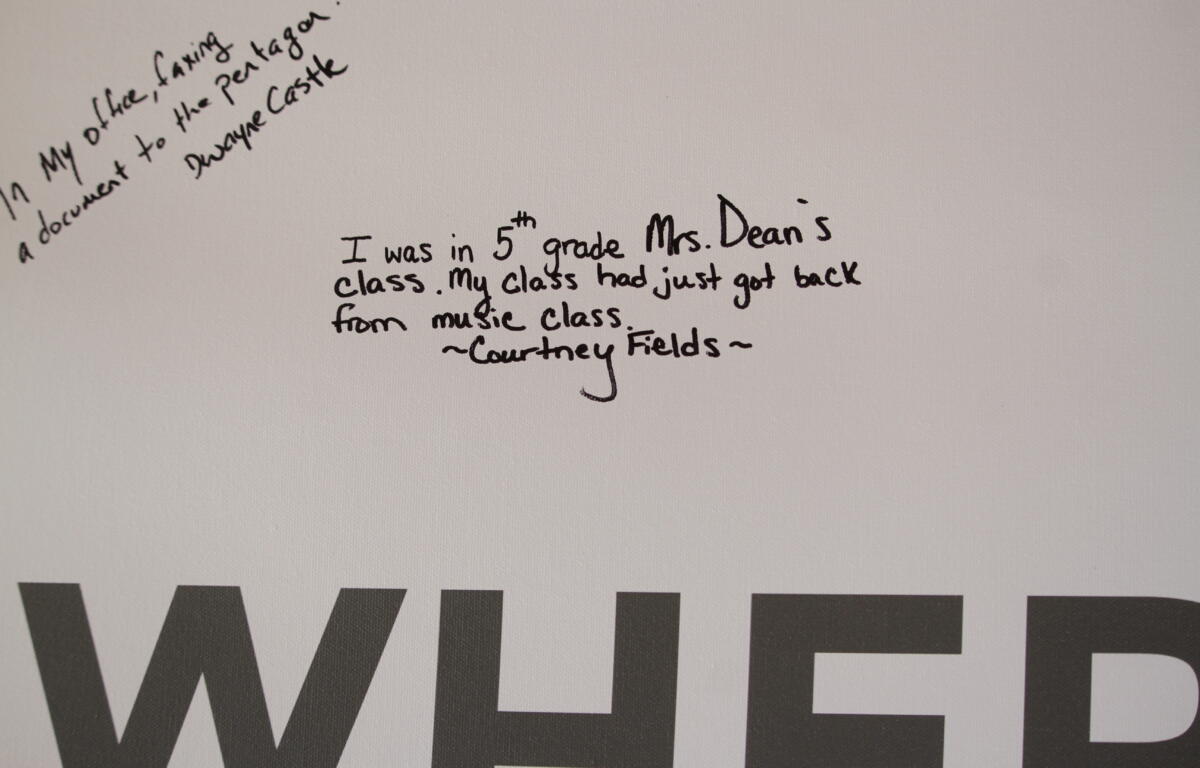 In My office, faxing
a document to the pentagon.
Dwayne Castle
I was in 5th grade Mrs. Dean's
class. My class had just got back
from music class.
~Courtney Fields~
WHER